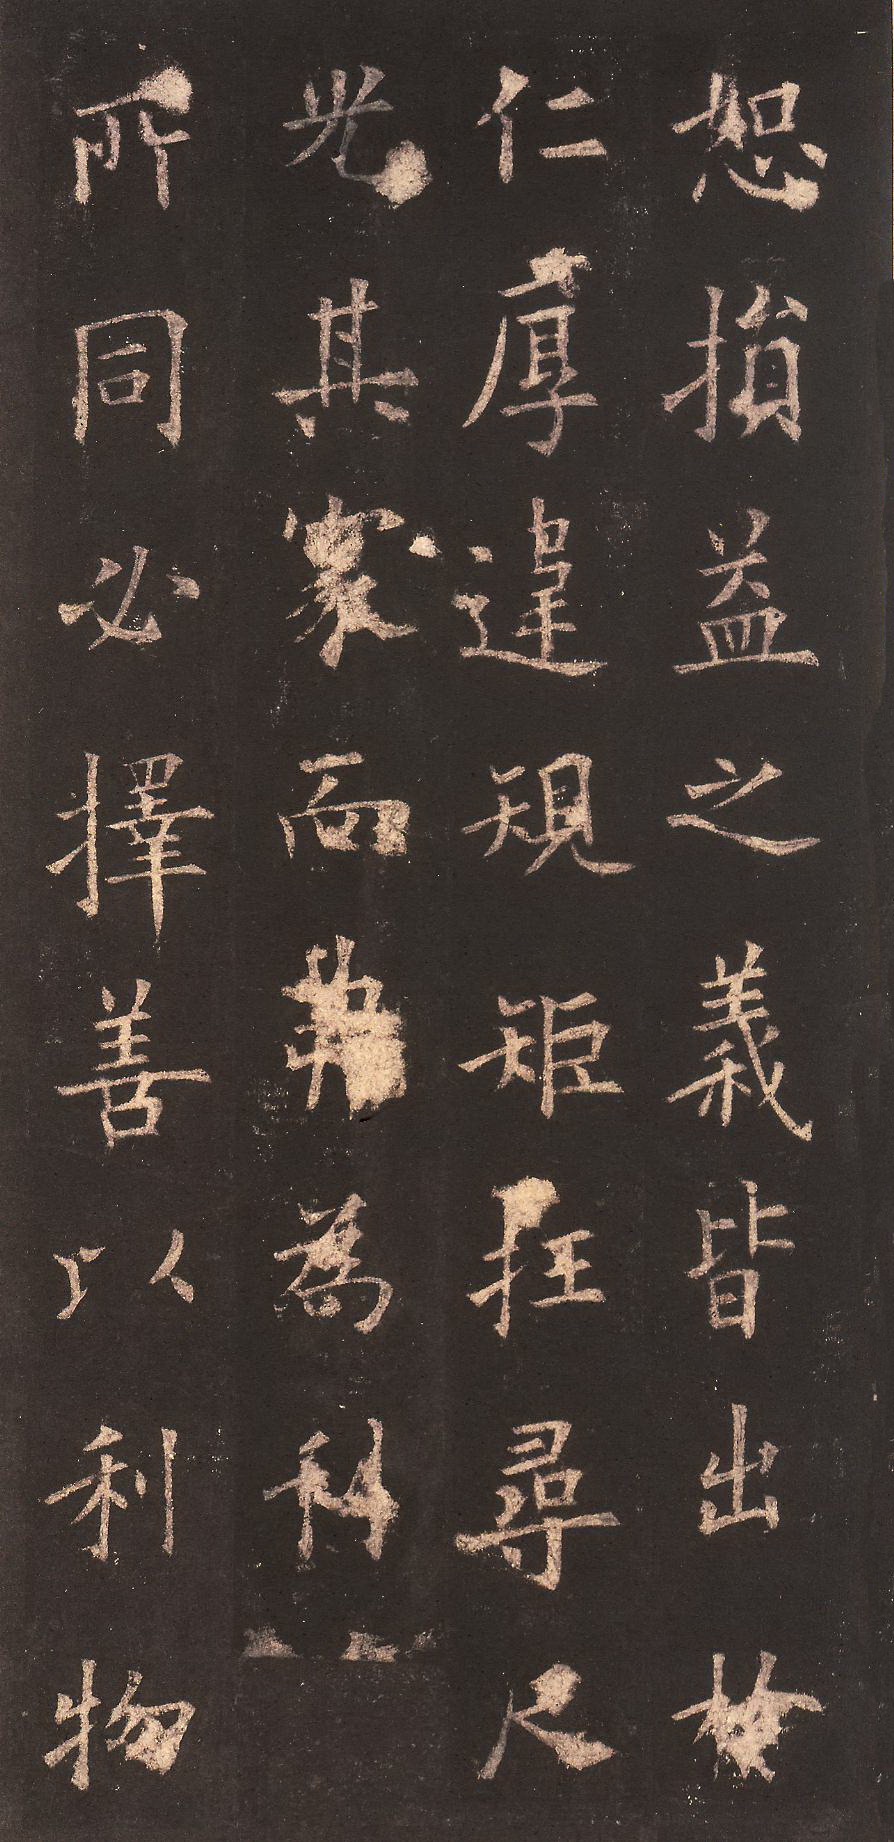 恕損益之義皆出扵
仁厚違規矩枉尋尺
光其而為科
所同必擇善以利物